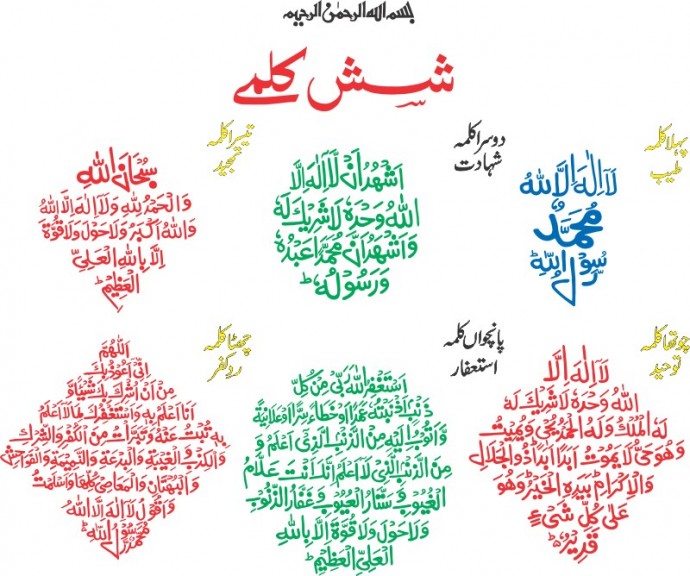 بسم الله الرحمن الرحیم
شش کلمے
پہلا کلمہ
طیب
لَا اِلٰهَ اِلَّا اللهُ
مُحَمَّدٌ
رَّسُوْلُ اللهِ
دوسرا کلمہ
شہادت
اَشْهَدُ اَنْ لَّا اِلٰهَ اِلَّا
اللهُ وَحْدَهٗ لَا شَرِيْكَ لَهٗ
وَاَشْهَدُ اَنَّ مُحَمَّدًا عَبْدُهٗ
وَرَسُوْلُهٗ
تیسرا کلمہ
تمجید
سُبْحَانَ اللهِ
وَالْحَمْدُ لِلّٰهِ وَلَا اِلٰهَ اِلَّا اللهُ
وَاللهُ اَكْبَرُ وَلَا حَوْلَ وَلَا قُوَّةَ
اِلَّا بِاللهِ الْعَلِيِّ
الْعَظِيْمِ
چوتھا کلمہ
توحید
لَا اِلٰهَ اِلَّا
اللهُ وَحْدَهٗ لَا شَرِيْكَ لَهٗ
لَهُ الْمُلْكُ وَلَهُ الْحَمْدُ يُحْيٖ وَيُمِيْتُ
وَهُوَ حَيٌّ لَّا يَمُوْتُ اَبَدًا اَبَدًا ذُو الْجَلَالِ
وَالْاِكْرَامِ بِيَدِهِ الْخَيْرُ وَهُوَ
عَلٰى كُلِّ شَيْءٍ
قَدِيْرٌ
پانچواں کلمہ
استعفار
اَسْتَغْفِرُ اللهَ رَبِّيْ مِنْ كُلِّ
ذَنْبٍ اَذْنَبْتُهٗ عَمَدًا اَوْ خَطَاءً سِرًّا اَوْ عَلَانِيَةً
وَّاَتُوْبُ اِلَيْهِ مِنَ الذَّنْبِ الَّذِيْ اَعْلَمُ وَ
مِنَ الذَّنْبِ الَّذِيْ لَا اَعْلَمُ اِنَّكَ اَنْتَ عَلَّامُ
الْغُيُوْبِ وَسَتَّارُ الْعُيُوْبِ وَغَفَّارُ الذُّنُوْبِ
وَلَا حَوْلَ وَلَا قُوَّةَ اِلَّا بِاللهِ
الْعَلِيِّ الْعَظِيْمِ
چھٹا کلمہ
رد کفر
اَللّٰهُمَّ
اِنِّيْ اَعُوْذُ بِكَ
مِنْ اَنْ اُشْرِكَ بِكَ شَيْئًا وَّ
اَنَا اَعْلَمُ بِهٖ وَاَسْتَغْفِرُكَ لِمَا لَا اَعْلَمُ
بِهٖ تُبْتُ عَنْهُ وَتَبَرَّاْتُ مِنَ الْكُفْرِ وَالشِّرْكِ
وَالْكِذْبِ وَالْغِيْبَةِ وَالْبِدْعَةِ وَالنَّمِيْمَةِ وَالْفَوَاحِشِ
وَالْبُهْتَانِ وَالْمَعَاصِيْ كُلِّهَا وَاَسْلَمْتُ
وَاَقُوْلُ لَا اِلٰهَ اِلَّا اللهُ
مُحَمَّدٌ رَّسُوْلُ اللهِ